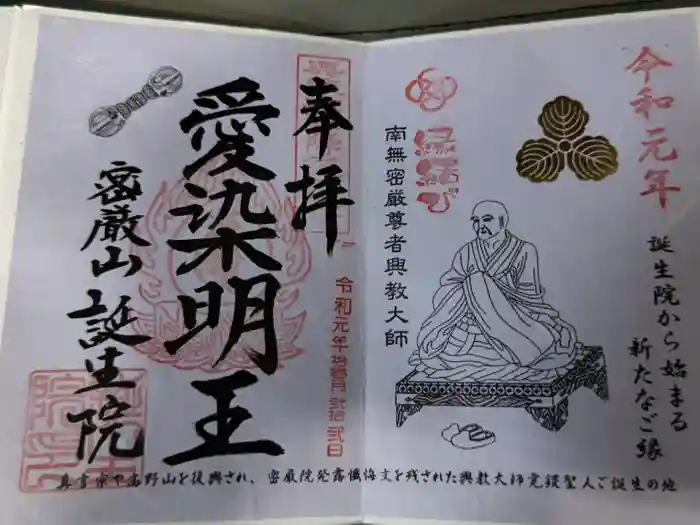 令和元年
誕生院から始まる
新たなご縁
縁結び
南無密厳尊者興教大師
奉拝
令和元年拾壱月弐拾弐日
愛染明王
密厳山誕生院
真言宗中高野山を復興され、密厳院発露懺悔文を残された興教大師覚鑁聖人ご誕生の地